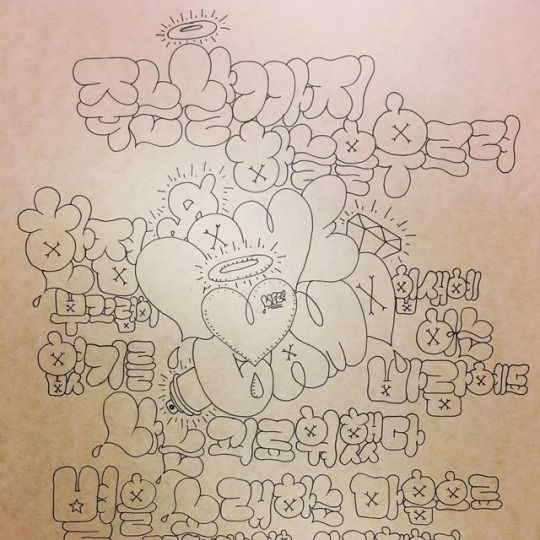 죽는 날까지
하늘을 우러러
한 점
부끄럼이
없기를
잎새에
이는
바람에도
나는 괴로워했다
별을 노래하는 마음으로